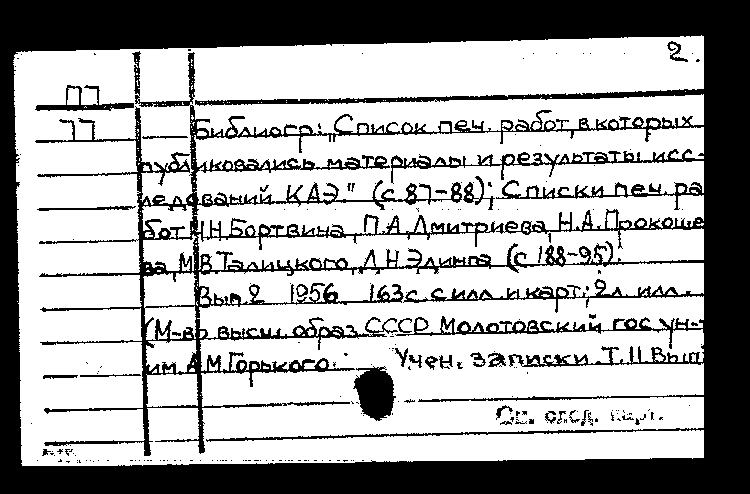 2.
П7
77
Библиогр: „Список печ. работ, в которых
публиковались материалы и результаты исс-
ледований КАЭ." (с.87-88); Списки печ. ра
бот Н.Н.Бортвина, П.А.Дмитриева, Н.А.Прокоше
ва, М.В.Талицкого, Д.Н.Эдинга (с.188-95).
Вып.2 1956. 163с. с илл. и карт.; 2л. илл.
(М-во высш. образ. СССР. Молотовский гос. ун-т
им. А.М.Горького. Учен. записки. Т.11. Вып
См. след. карт.